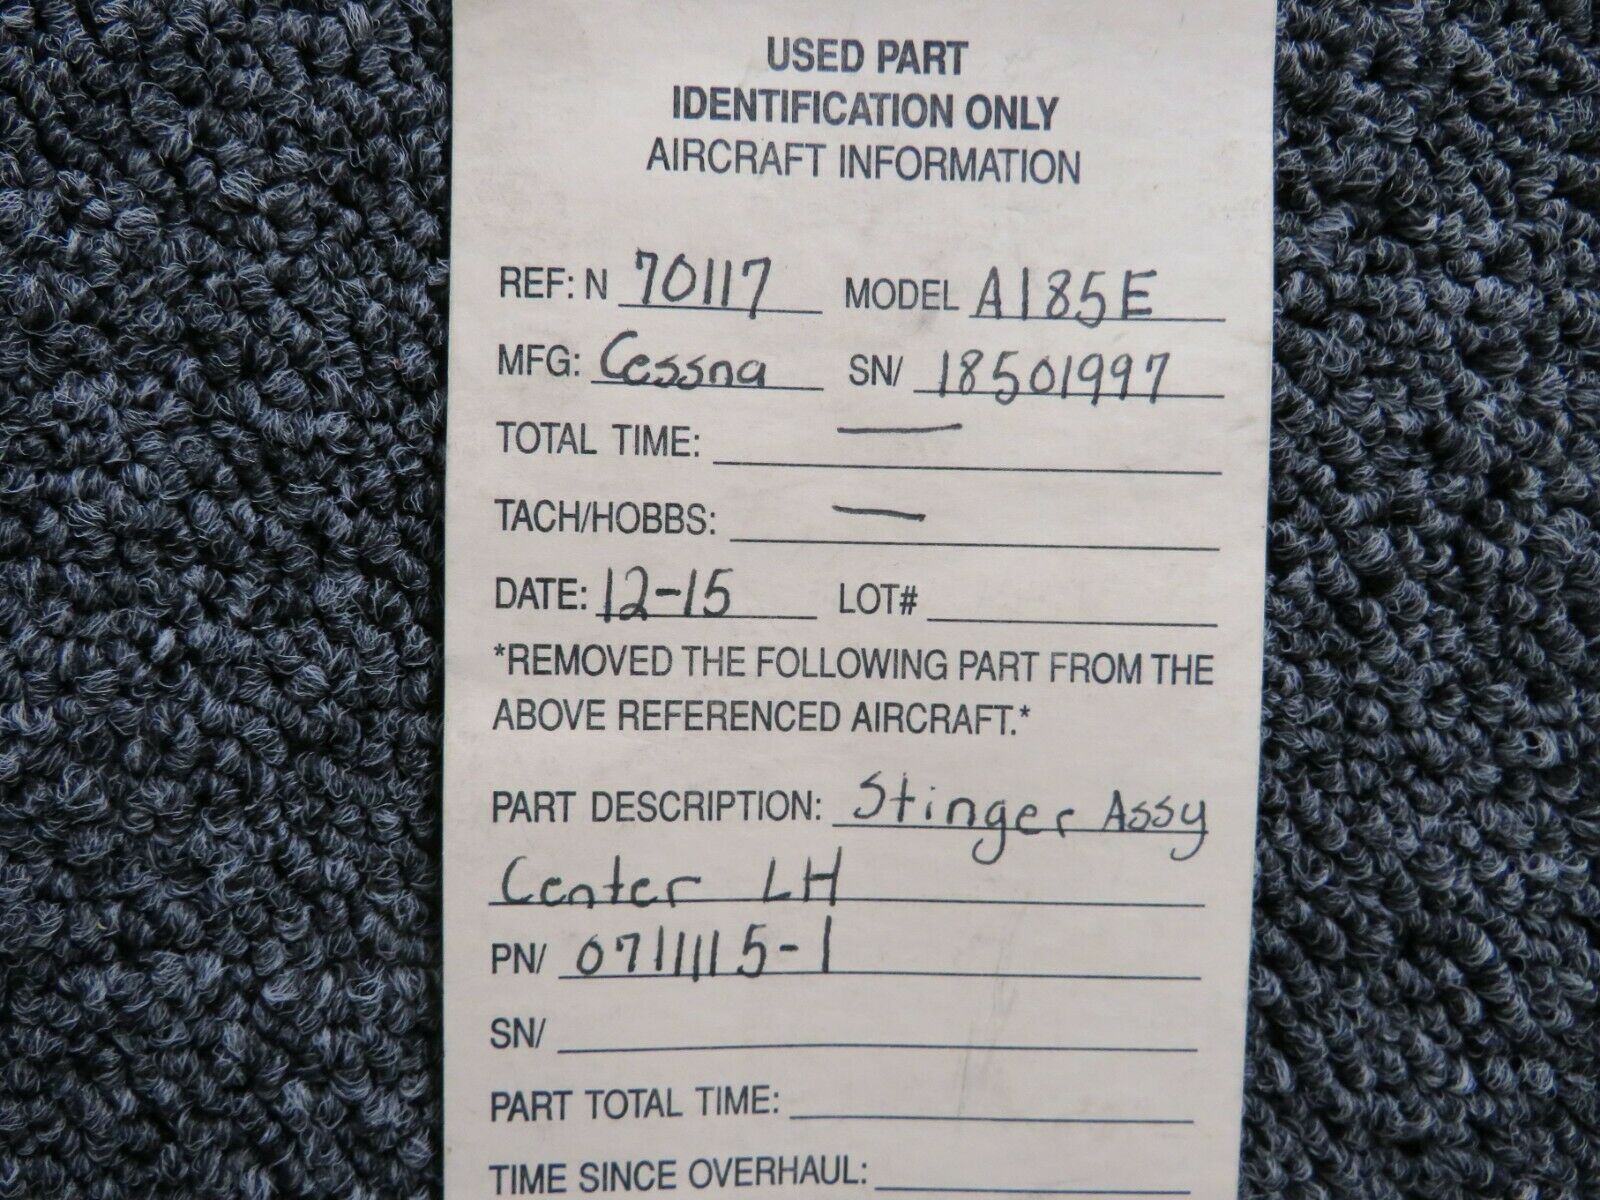 USED PART
IDENTIFICATION ONLY
AIRCRAFT INFORMATION
REF: N 70117 MODEL A185E
MFG: Cessna SN/ 18501997
TOTAL TIME: —
TACH/HOBBS: —
DATE: 12-15 LOT#
*REMOVED THE FOLLOWING PART FROM THE
ABOVE REFERENCED AIRCRAFT.*
PART DESCRIPTION: Stinger Assy
Center LH
PN/ 0711115-1
SN/
PART TOTAL TIME:
TIME SINCE OVERHAUL: